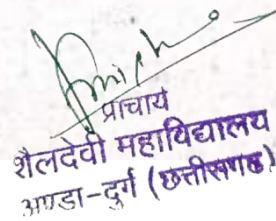 प्राचार्य
शैलदेवी महाविद्यालय
अण्डा-दुर्ग (छत्तीसगढ)